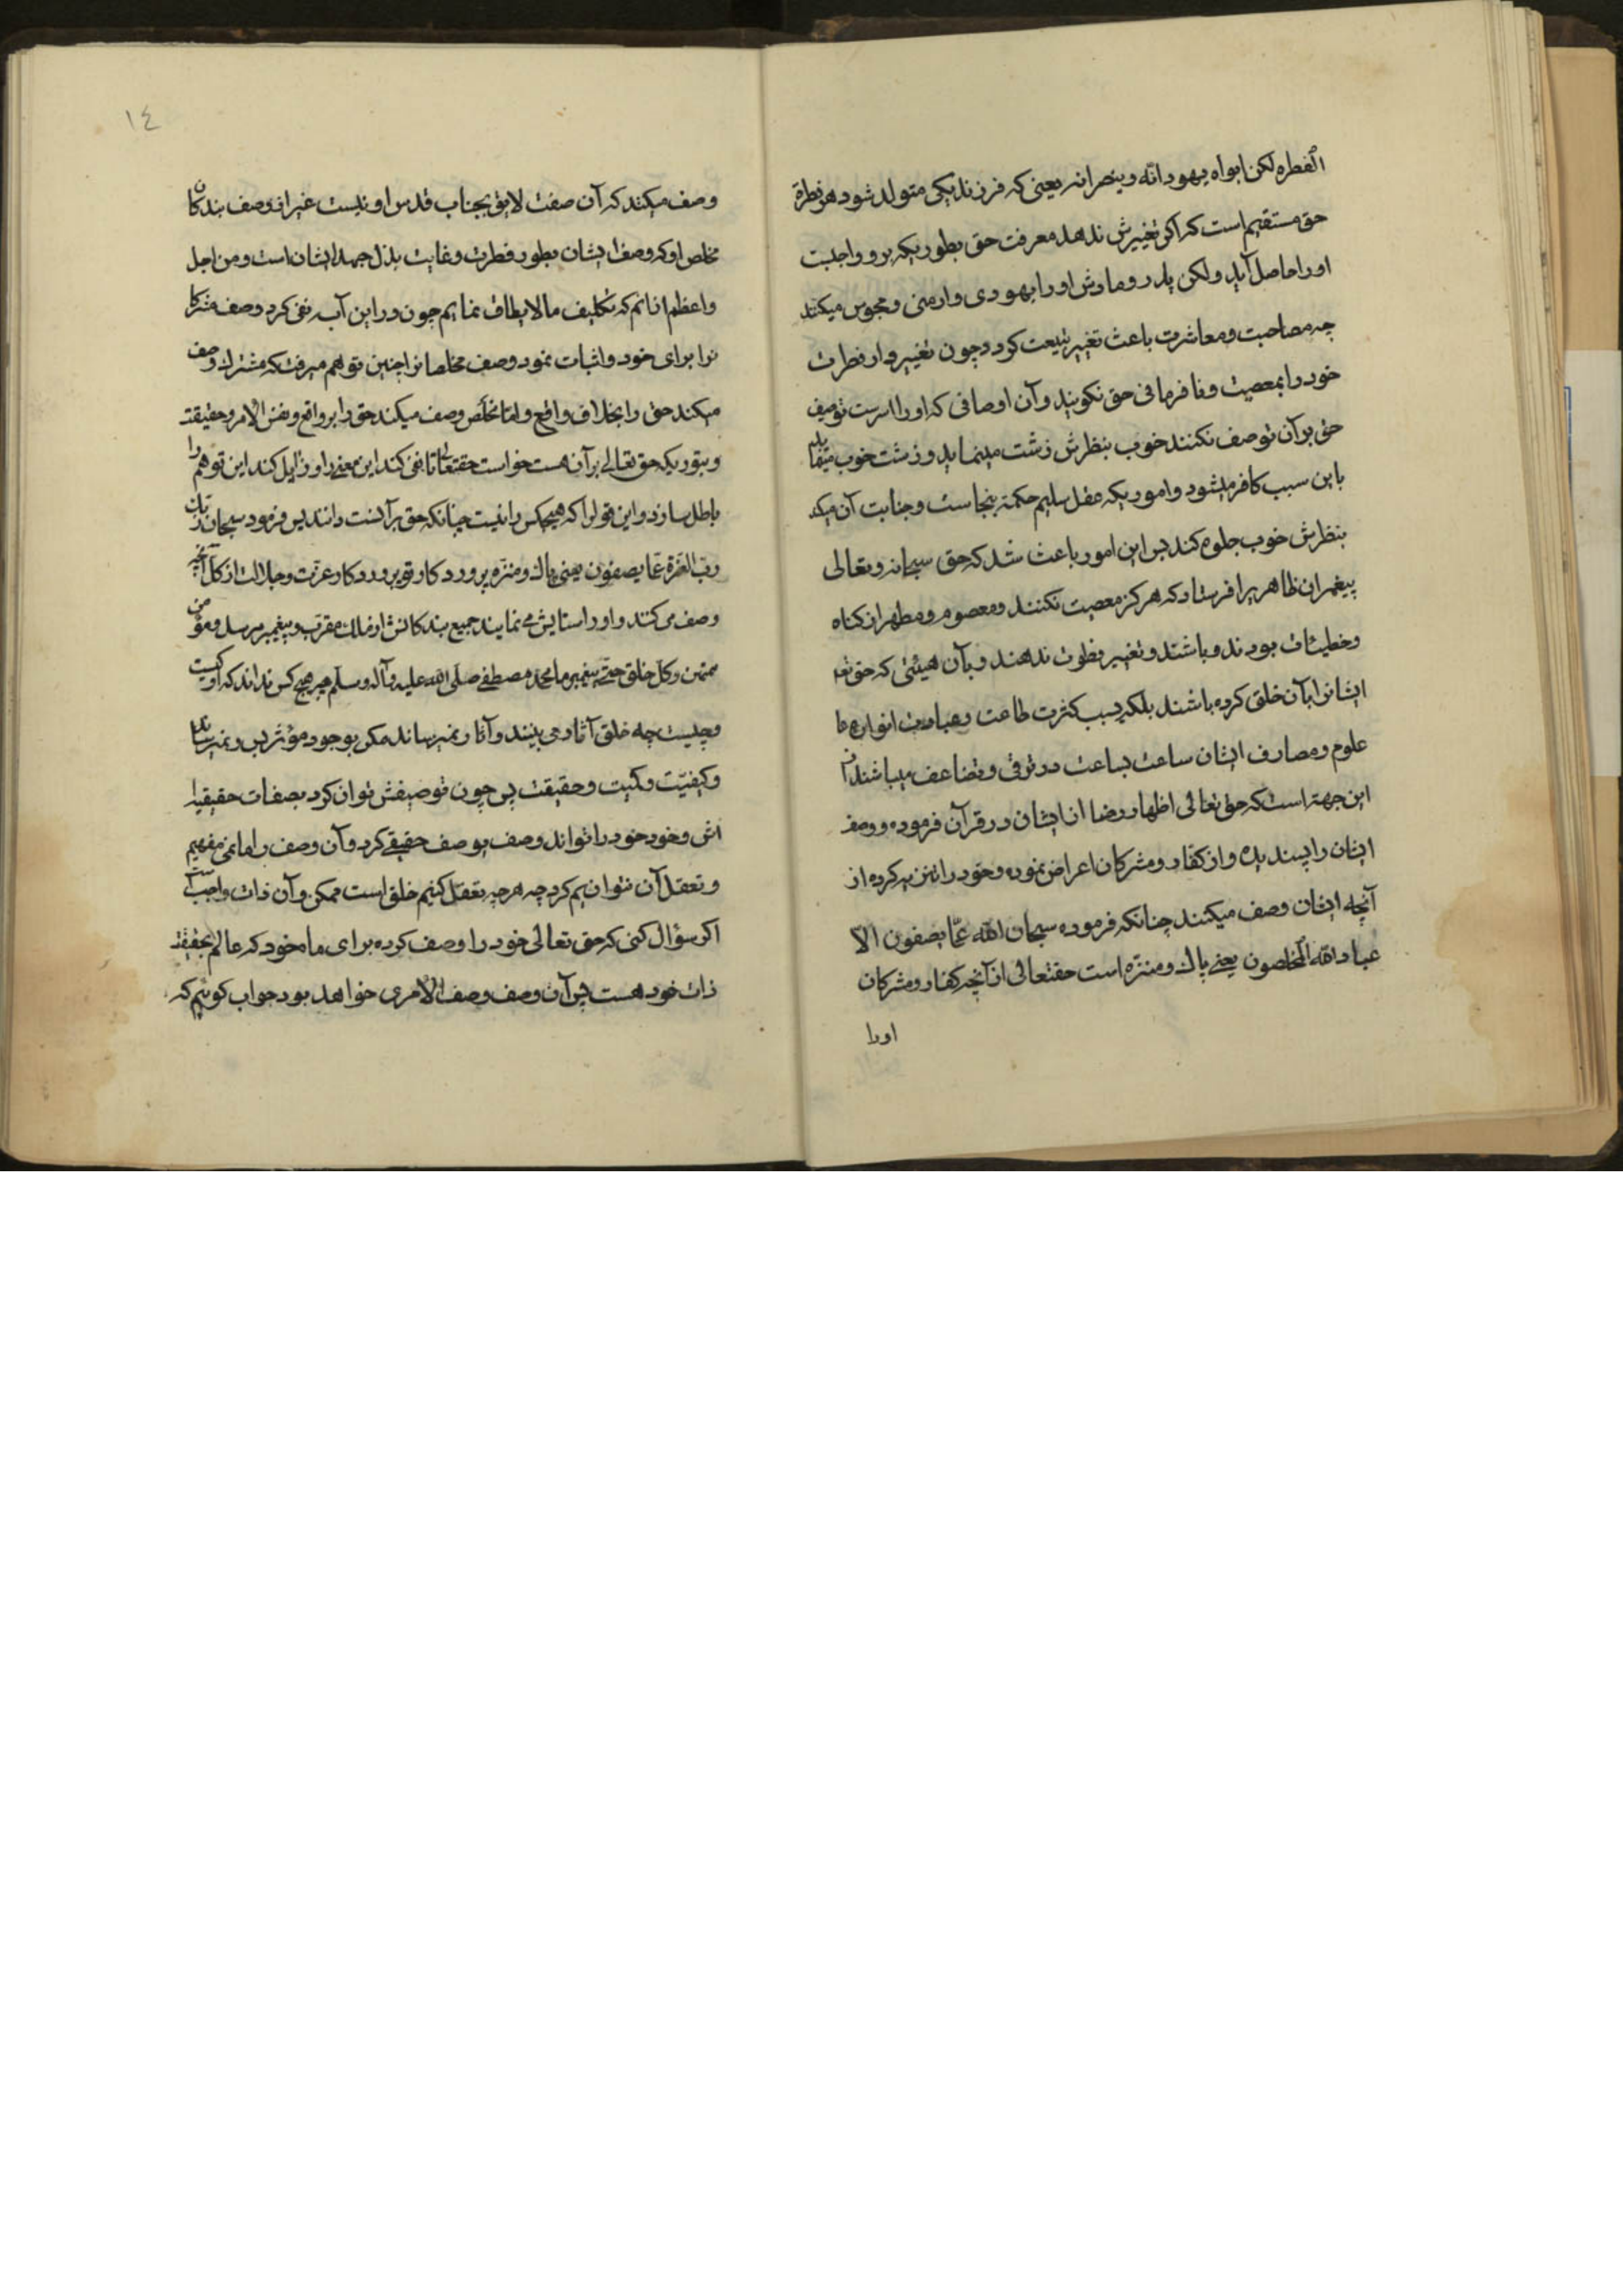 الفطره لکن ابواه یهودانه وینصرانه یعنی که فرزندیکی متولد شود هر فطرة
حق مستقیم است که اگر تغییرش ندهد معرفت حق بطوریکه برو واجبست
اورا حاصل آید ولکن پدر ومادرش اورا یهودی وارمنی ومجوس میکنند
چه مصاحبت ومعاشرت باعث تغییر طبیعت کردد وچون تغییر داد فطرت
خود را بمعصیت ونافرمانی حق نکویند وآن اوصافی که اورا است توصیف
حق برآن توصف نکنند خوب بنظرش زشت مینماید وزشت خوب
باین سبب کافر میشود واموریکه عقل سلیم حکمة بنجاست وجنابت آن میکند
بنظرش خوب جلوه کند پس این امور باعث شد که حق سبحانه وتعالی
پیغمبران ظاهر را فرستاد که هرکز معصیت نکنند ومعصوم ومطهر از کناه
وخطیئات بودند وباشند وتغییر فطرت ندهند وبآن هیئتی که حق تعه
ایشانرا بآن خلق کرده باشند بلکه بسبب کثرت طاعت وعبادت انوارها
علوم ومعارف ایشان ساعت بساعت در ترقی وتضاعف میباشند از
این جهة است که حق تعالی اظهار رضا از ایشان در قرآن فرموده ووصف
ایشان را پسندیده واز کفار ومشرکان اعراض نموده وخود را تنزیه کرده از
آنچه ایشان وصف میکنند چنانکه فرموده سبحان الله عمّا یصفون الا
عباد الله المخلصون یعنی پاک ومنزّه است حقتعالی از آنچه کفار ومشرکان
اورا
١٤
وصف میکنند که آن صفت لایق بجناب قدس او نیست غیر از وصف بندکان
مخلص او که وصف ایشان بطور فطرت وغایت بذل جهد ایشان است ومن اجل
واعظم از انم که تکلیف مالایطاق نمایم چون در این آیه نفی کرد وصف مشرکا
نرا برای خود واثبات نمود وصف مخلصانرا چنین توهم میرفت که مشرک وصف
میکند حق را بخلاف واقع وامّا مخلَص وصف میکند حق را بر واقع ونفس الامر وحقیقته
وبتوریکه حق تعالی برآن هست خواست حقتعالی تا نفی کند این معنی را وزایل کند این توهم را
باطل سازد واین قول را که هیچکس را نیست چنانکه حق برآنست دانند پس فرمود سبحان ربّک
ربّ العزّة عمّا یصفون یعنی پاک ومنزّه پروردکار تو پروردکار عزّت وجلالت از کل آنچه
وصف می کنند واورا ستایش می نمایند جمیع بندکانش از ملک مقرّب وپیغمبر مرسل ومؤمن
ممتحن وکل خلق حتی پیغمبر ما محمد مصطفی صلی الله علیه وآله وسلم چه هیچ کس نداند که او کیست
وچیست چه خلق آثار می بینند وآثار نمیرساند مکر بوجود مؤثر پس ونمیرساند
وکیفیّت وکمیّت وحقیقت پس چون توصیفش توان کرد بصفات حقیقیه
اش وخود خود را تواند وصف بوصف حقیقی کرد وآن وصف را ما نمی فهمیم
وتعقل آن نتوانیم کرد چه هرچه تعقل کنیم خلق است ممکن وآن ذات واجب است
اکر سؤال کنی که حق تعالی خود را وصف کرده برای ما وخود که عالم بحقیقة
ذات خود هست پس آن وصف وصف الامری خواهد بود جواب کوئیم که